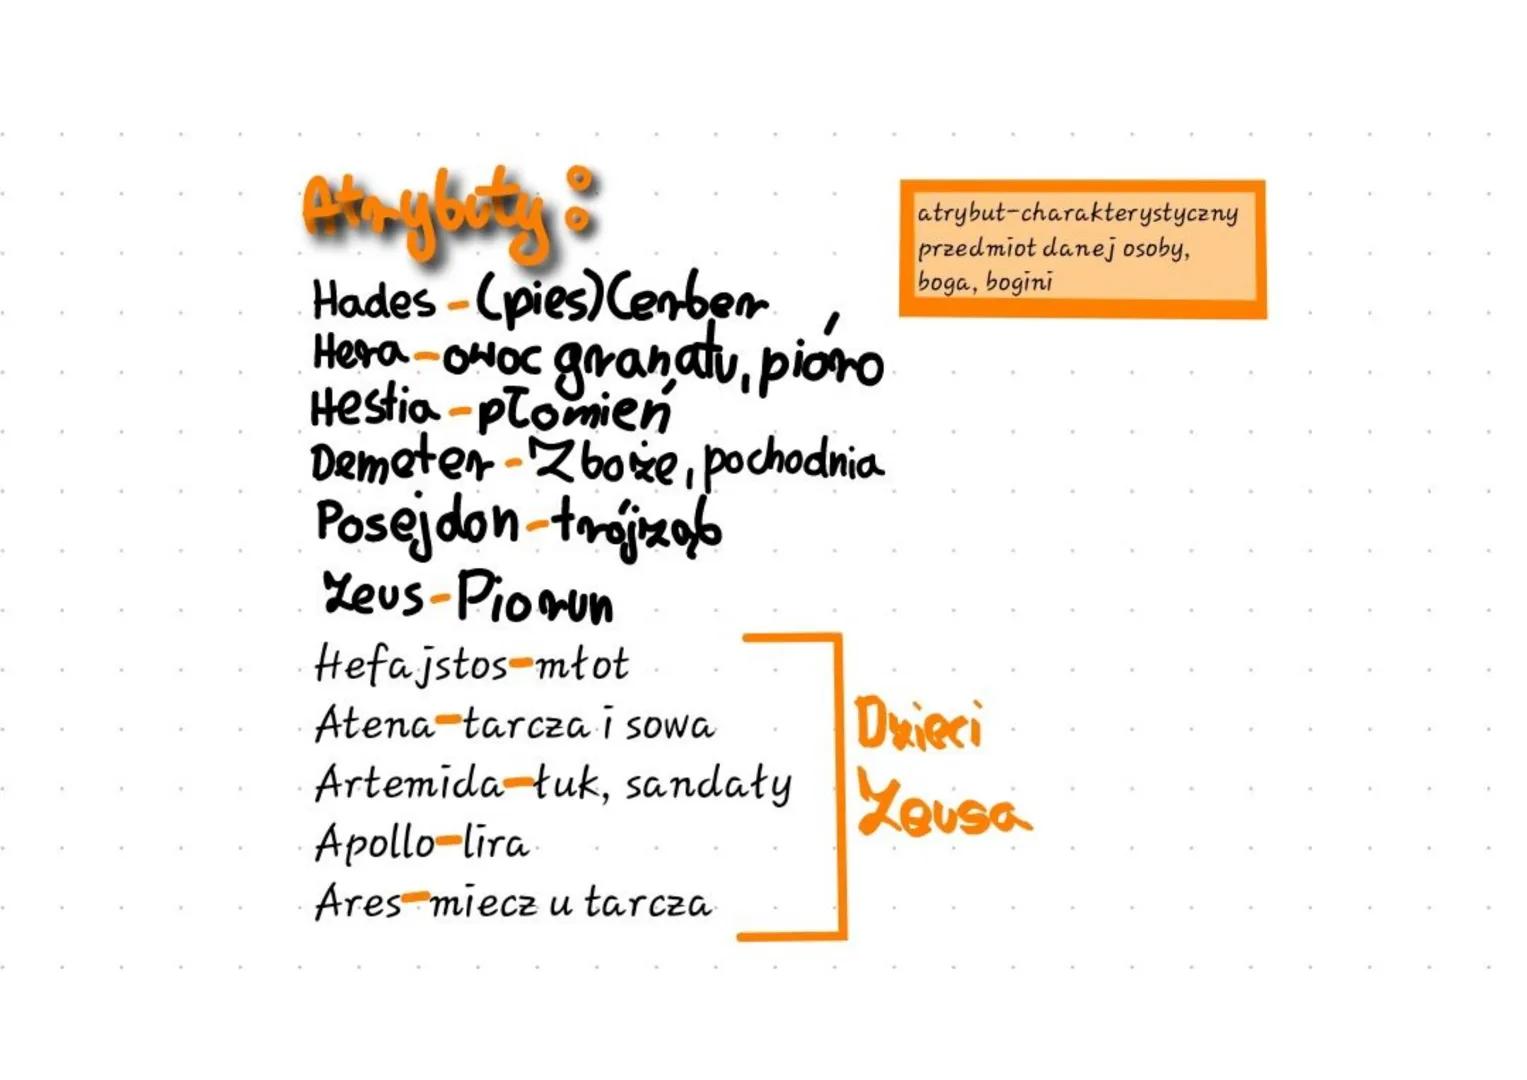 Atrybuty:
atrybut-charakterystyczny
przedmiot danej osoby,
boga, bogini
Hades - (pies) Cerber
Hera - owoc granatu, pióro
Hestia - płomień
Demeter - Zboże, pochodnia
Posejdon - trójząb
Zeus - Piorun
Hefajstos-młot
Atena-tarcza i sowa
Artemida-łuk, sandały
Apollo-lira
Ares-miecz u tarcza
Dzieci
Zeusa